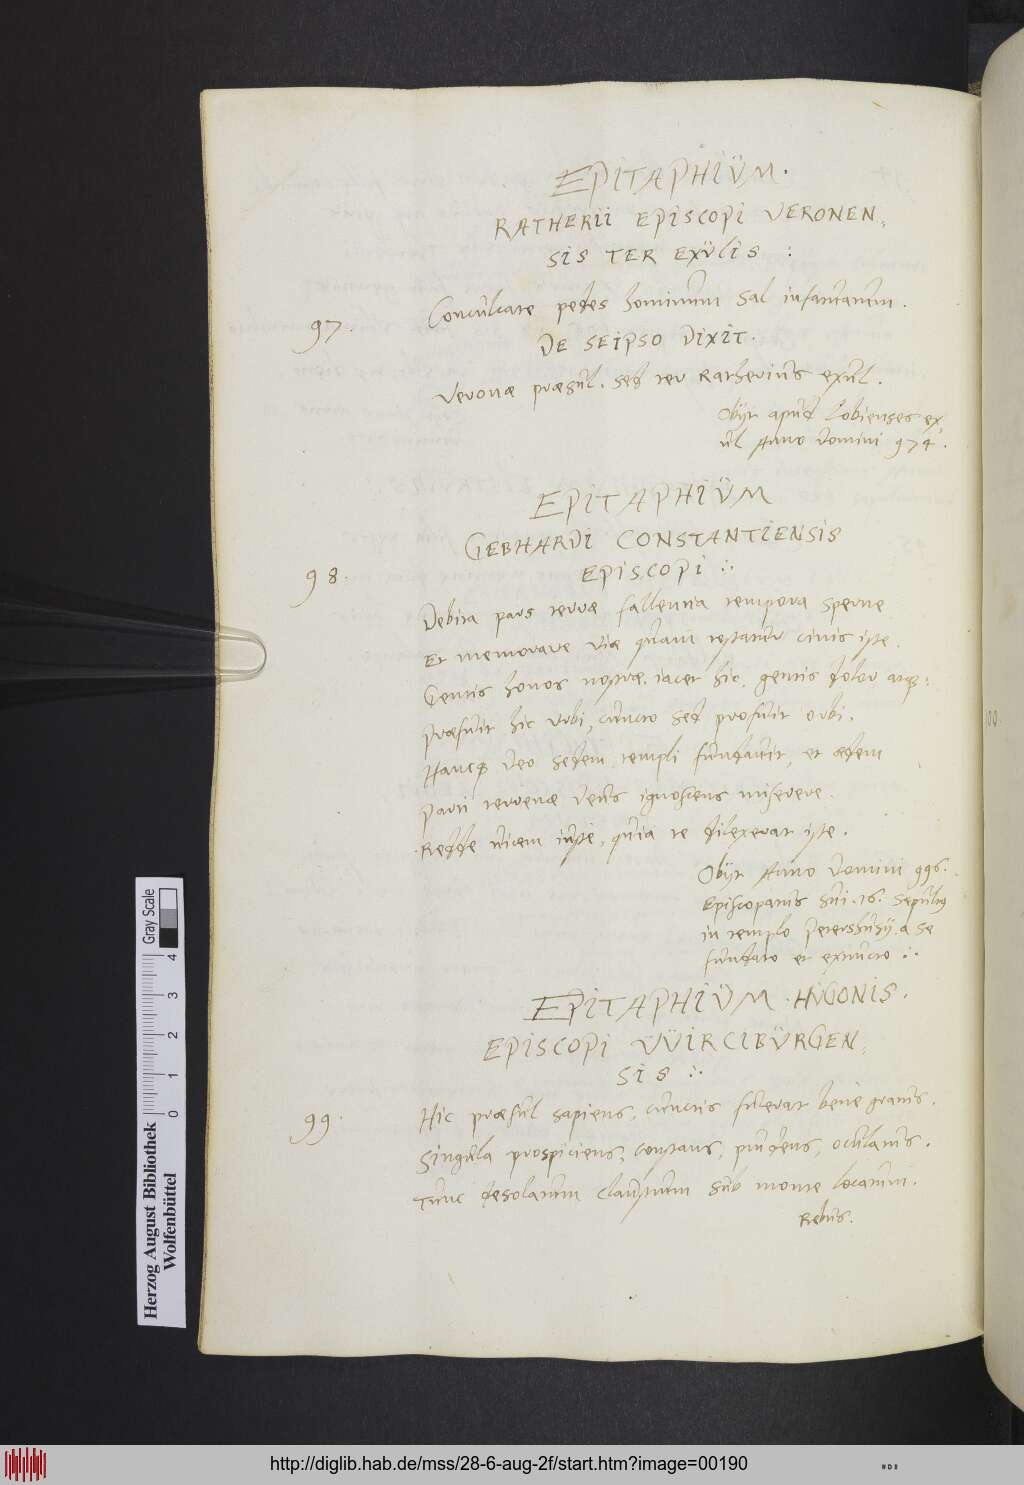 EPITAPHIÜM.
RATHERII EPISCOPI VERONEN=
SIS TER EXÜLIS :
97.
Conculcate pedes hominum Sal infatuatum.
DE SEIPSO DIXIT.
Veronæ præsul, sed ter Ratherius exul.
Obijt apud Lobienses ex=
ul Anno Domini 974.
EPITAPHIÜM
GEBHARDI CONSTANTIENSIS
EPISCOPI :.
98.
Debita pars terræ fallentia tempora sperne
Et memorare viæ quam testatur civis iste.
Gentis honos nostræ, iacet hic, gentis dolor atq3:
Præfuit hic urbi, cuncto sed profuit orbi.
Hancq3 Deo sedem templi fundavit, et ædem
Parti terrenæ Deus ignoscens miserere.
Redde vicem iuste, quia te dilexerat iste.
Obijt Anno Domini 996.
Episcopatus sui .16. sepultus
in templo Petershusij a se
fundato et extructo :.
EPITAPHIÜM HÜGONIS.
EPISCOPI VÜIRCIBÜRGEN=
SIS :.
99.
Hic præsul sapiens, cunctis fuerat bene gratus.
Singula prospiciens, constans, prudens, oculatus.
Tunc desolatum claustrum sub monte locatum.
Rebus.
100.
Herzog August Bibliothek
Wolfenbüttel
0 1 2 3 4
Gray Scale
http://diglib.hab.de/mss/28-6-aug-2f/start.htm?image=00190